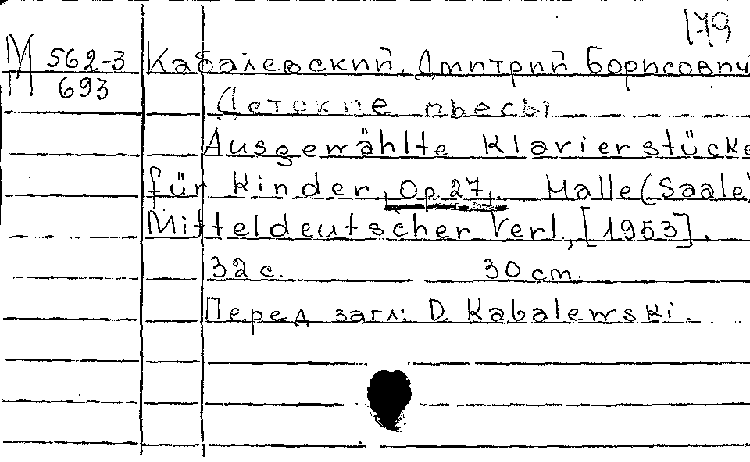 179
М 562-3 Кабалевский, Дмитрий Борисович
693
Детские пьесы
Ausgewählte Klavierstücke
für Kinder, Op. 27. Halle (Saale)
Mitteldeutscher Verl., [1953].
32 с. 30 cm.
Перед загл.: D. Kabalewski.